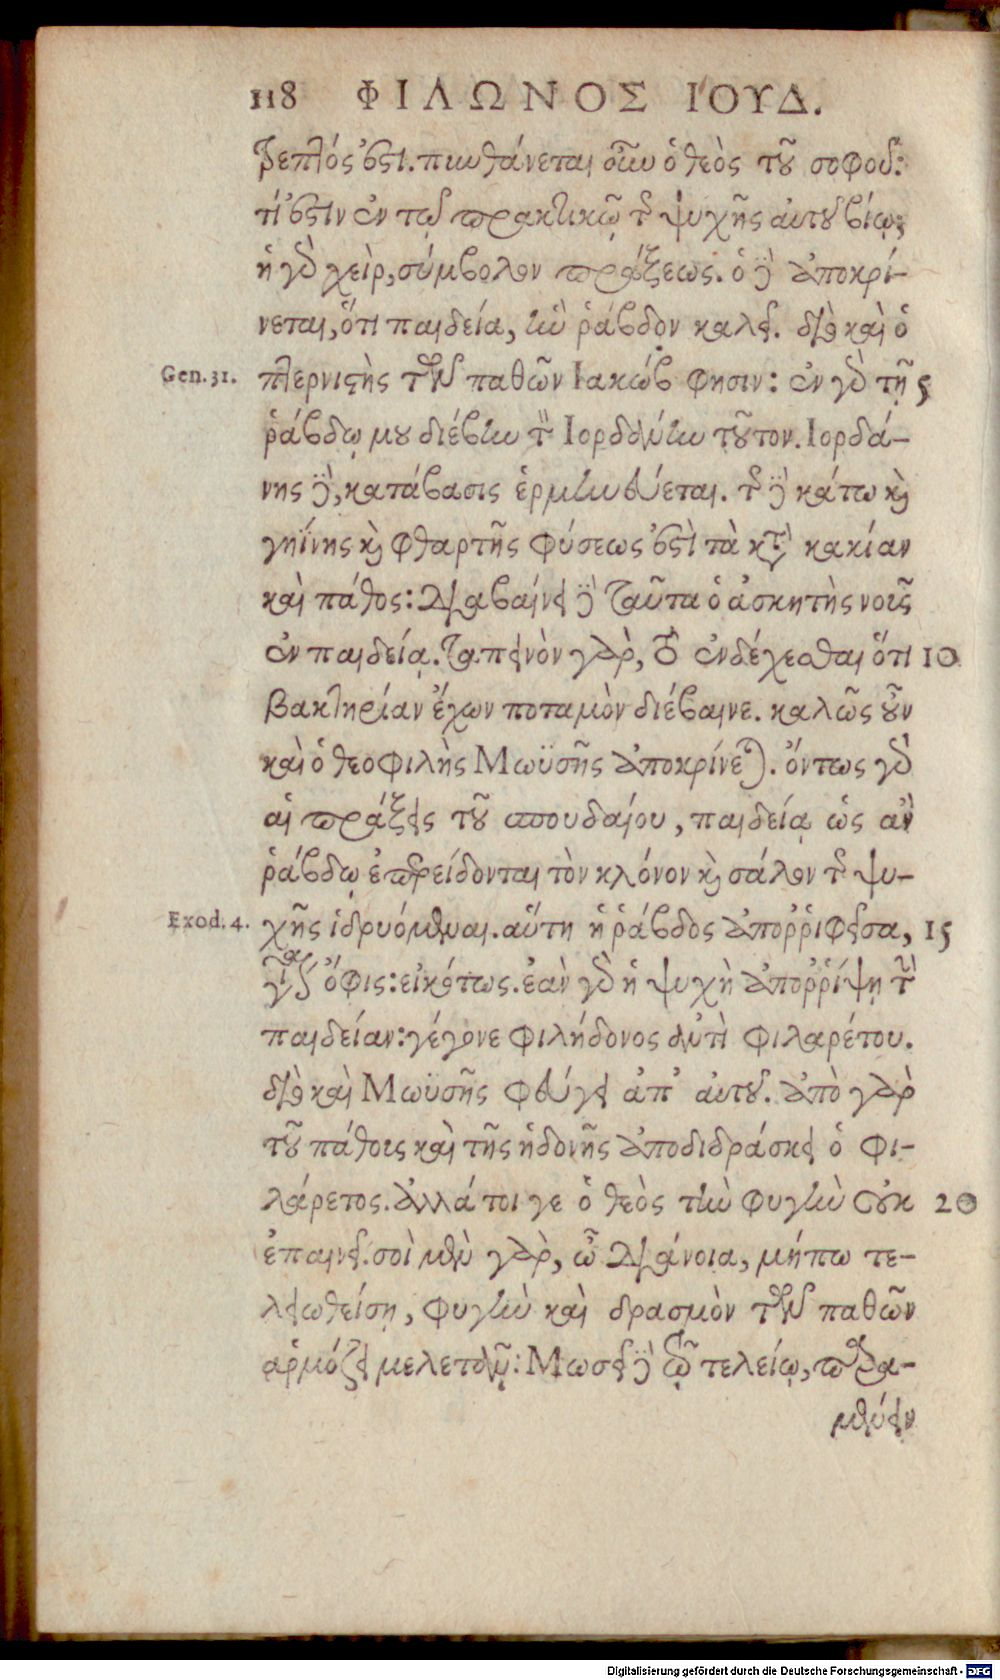 118 ΦΙΛΩΝΟΣ ΙΟΥΔ.
τρεπτός ἐστι. πυνθάνεται οὖν ὁ θεὸς τοῦ σοφοῦ:
τί ἐστιν ἐν τῷ πρακτικῷ τῆς ψυχῆς αὐτοῦ βίῳ;
ἡ γὰρ χεὶρ, σύμβολον πράξεως. ὁ δὲ ἀποκρί-
νεται, ὅτι παιδεία, ἣν ῥάβδον καλεῖ. διὸ καὶ ὁ
Gen. 31. πτερνιστὴς τῶν παθῶν Ιακώβ φησιν: ἐν γὰρ τῇ 5
ῥάβδῳ μου διέβην τὸν Ιορδάνην τοῦτον. Ιορδά-
νης δὲ, κατάβασις ἑρμηνεύεται. τῆς δὲ κάτω καὶ
γηΐνης καὶ φθαρτῆς φύσεως ἐστὶ τὰ κατὰ κακίαν
καὶ πάθος: διαβαίνει δὲ ταῦτα ὁ ἀσκητὴς νοῦς
ἐν παιδείᾳ. ταπεινὸν γὰρ, τὸ ἐνδέχεσθαι ὅτι 10
βακτηρίαν ἔχων ποταμὸν διέβαινε. καλῶς οὖν
καὶ ὁ θεοφιλὴς Μωϋσῆς ἀποκρίνεται. ὄντως γὰρ
αἱ πράξεις τοῦ σπουδαίου, παιδείᾳ ὡς ἂν
ῥάβδῳ ἐπερείδονται τὸν κλόνον καὶ σάλον τῆς ψυ-
Exod. 4. χῆς ἱδρυόμεναι. αὕτη ἡ ῥάβδος ἀποῤῥιφεῖσα, 15
γίνεται ὄφις: εἰκότως. ἐὰν γὰρ ἡ ψυχὴ ἀποῤῥίψῃ τὴν
παιδείαν: γέγονε φιλήδονος ἀντὶ φιλαρέτου.
διὸ καὶ Μωϋσῆς φεύγει ἀπ' αὐτοῦ. ἀπὸ γὰρ
τοῦ πάθους καὶ τῆς ἡδονῆς ἀποδιδράσκει ὁ φι-
λάρετος. ἀλλά τοι γε ὁ θεὸς τὴν φυγὴν οὐκ 20
ἐπαινεῖ. σοὶ μὲν γὰρ, ὦ διάνοια, μήπω τε-
λειωθείσῃ, φυγὴν καὶ δρασμὸν τῶν παθῶν
ἁρμόζει μελετᾷν: Μωσεῖ δὲ τῷ τελείῳ, παρα-
μένειν
Digitalisierung gefördert durch die Deutsche Forschungsgemeinschaft - DFG